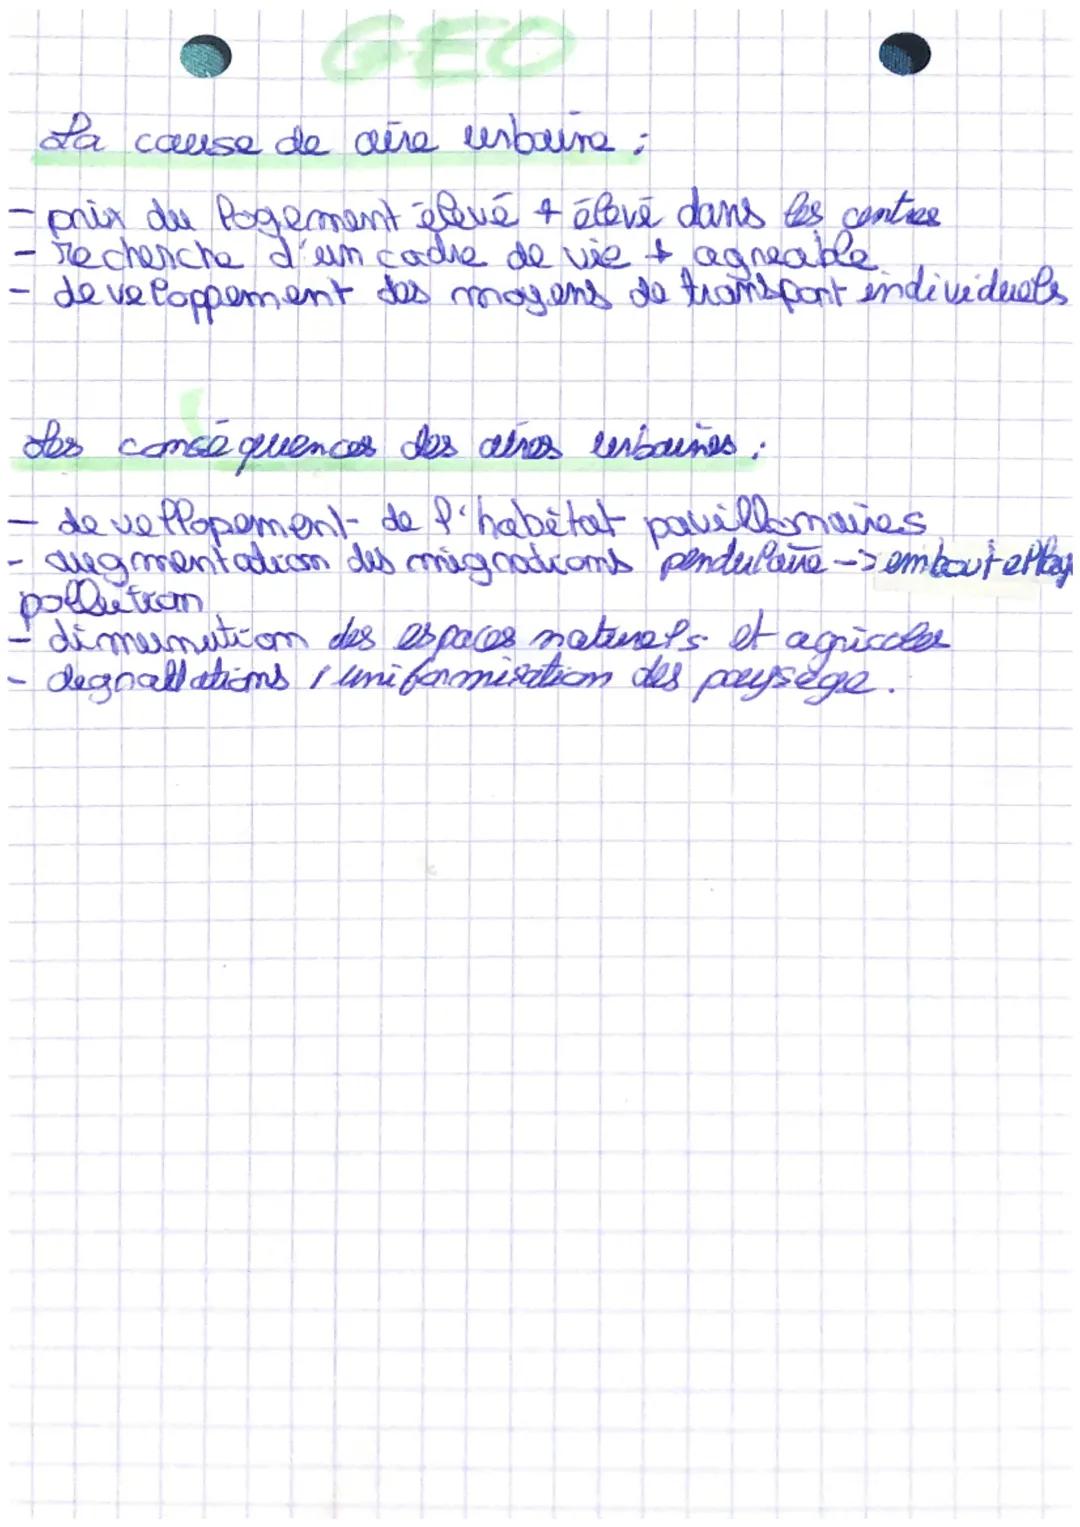 GEO
La cause de aire urbaine :
- prix du logement élevé + élevé dans les centres
- recherche d'un cadre de vie + agreable
- developpement des moyens de transport individuels
Les conséquences des aires urbaines :
- devellopement de l'habitat pavillonnaires
- augmentation des migrations pendulaire -> embouteillag
pollution
- dimunution des espaces naturels et agricoles
- / uniformisation des paysage.